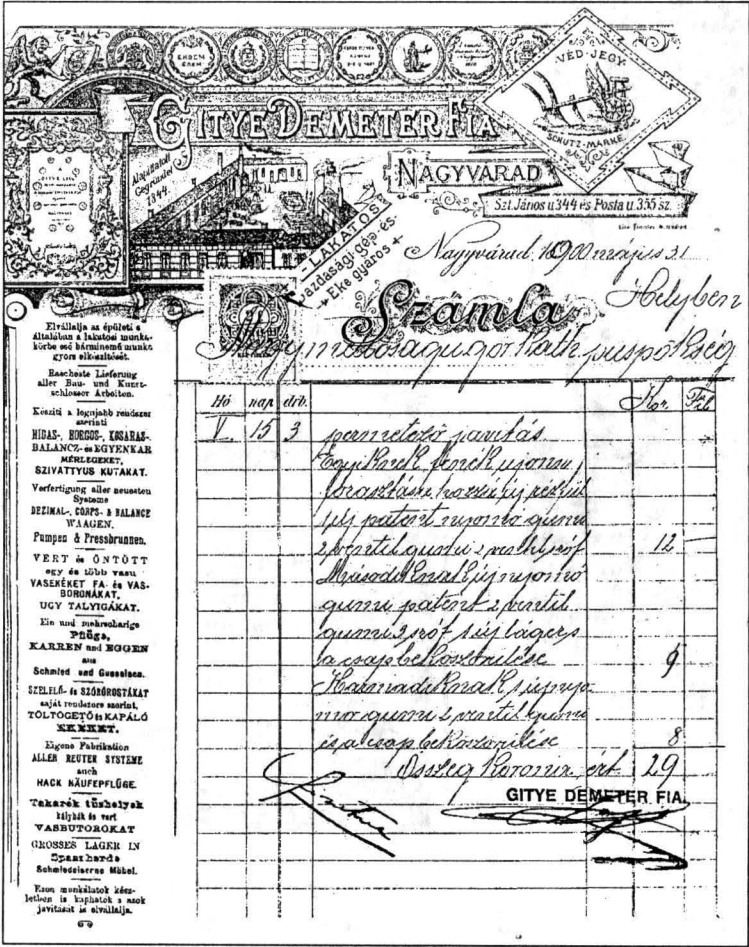 ERDEM ÉREM
VÉD-JEGY
SCHUTZ-MARKE
GITYE DEMETER FIA
NAGYVÁRAD
Alapittatott
Gegründet
1844.
Szt. János u 344 és Posta u. 355 sz.
LAKATOS
Gazdasági gép- és
Eke gyáros
Nagyvárad, 1900 május 31
Számla
Helyben
püspökség
Elvállalja az épületi s
általában a lakatosi munka-
körbe eső bárminemű munka
gyors elkészitését.
Rascheste Lieferung
aller Bau- und Kunst-
schlosser Arbeiten.
Késziti a legujabb rendszer
szerinti
HIDAS-, HORGOS-, KOSARAS-
BALANCZ- és EGYENKAR
MÉRLEGEKET,
SZIVATTYUS KUTAKAT.
Verfertigung aller neuesten
Systeme
DEZIMAL-, CORPS- & BALANCE
WAAGEN.
Pumpen & Pressbrunnen.
VERT és ÖNTÖTT
egy és több vasu
VASEKÉKET FA- és VAS-
BORONÁKAT,
UGY TALYIGÁKAT.
Ein und mehrscharige
Pflüge,
KARREN und EGGEN
aus
Schmied und Gusseisen.
SZELELŐ- és SZÓRÓROSTÁKAT
saját rendszere szerint,
TÖLTÖGETŐ és KAPÁLÓ
EKÉKET.
Eigene Fabrikation
ALLER REUTER SYSTEME
auch
HACK HÄUFEPFLÜGE.
Takarék tűzhelyek
kályhák és vert
VASBUTOROKAT
GROSSES LAGER IN
Spaarherde
Schmiedeiserne Möbel.
Ezen munkálatok kész-
letben is kaphatók s azok
javitását is elvállalja.
Hó nap drb. Kor. Fil
V. 15 3 permetező javitás
Egyiknek fenék ujonni
forasztása hozzá új
új patent nyomó gumi
2 ventil gumi 2 12
Másodiknak új nyomó
gumi patent 2 ventil
gumi 2
a csap beköszörülése 9
Harmadiknak 1 új nyo
mó gumi 2 ventil gumi
és a csap beköszörülése 8
Összeg Korona ért. 29
GITYE DEMETER FIA.